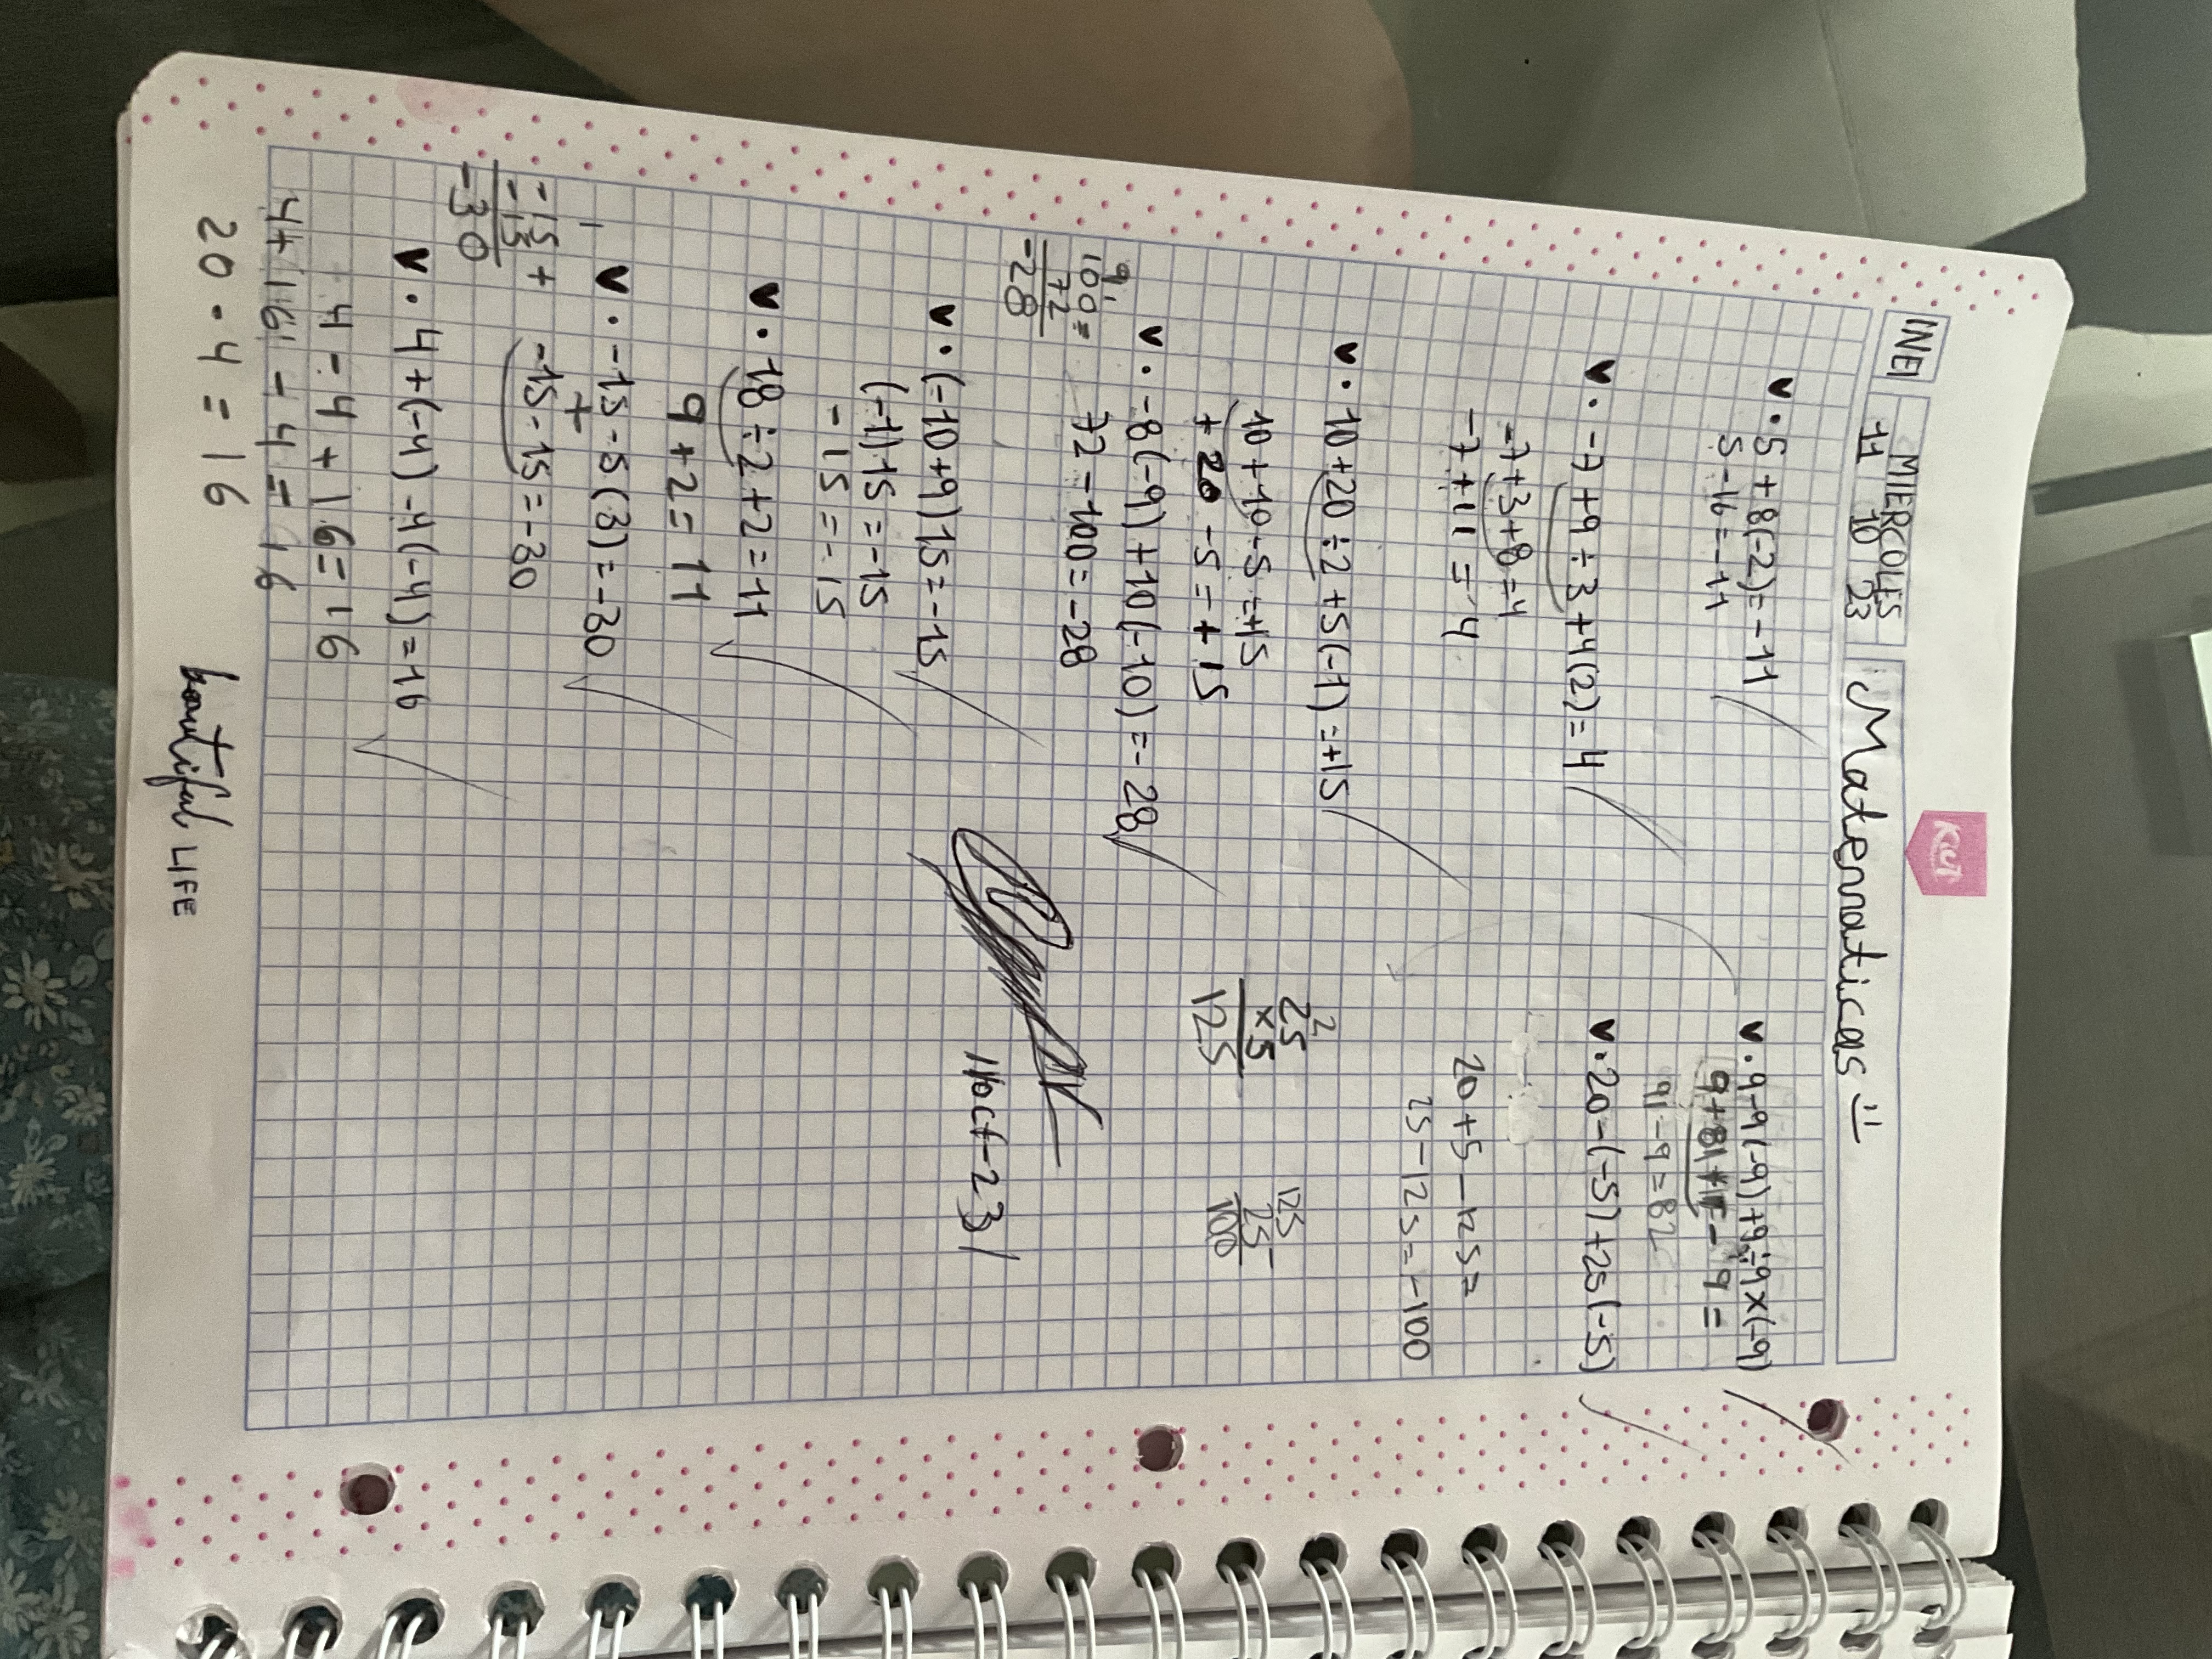 INE
MIERCOLES
11 10 23
Matematicas
Kiut
• 5+8(-2)=-11
5-16=-11
• -7+9÷3+4(2)=4
-7+3+8=4
-7+11=4
• 10+20÷2+5(-1)=+15
10+10-5=+15
+20-5=+15
• -8(-9)+10(-10)=-28
72-100=-28
100-
72
-28
• (-10+9)15=-15
(-1)15=-15
-15=-15
• 18÷2+2=11
9+2=11
• -15-5(3)=-30
+
-15-15=-30
-15+
-15
-30
• 4+(-4)-4(-4)=16
4-4+16=16
4+16-4=16
20-4=16
• 9-9(-9)+9÷9x(-9)
9+81+1-9=
91-9=82
• 20-(-5)+25(-5)
20+5-125=
25-125=-100
2
25
x5
125
125
25-
100
11oct-23/
beautiful LIFE